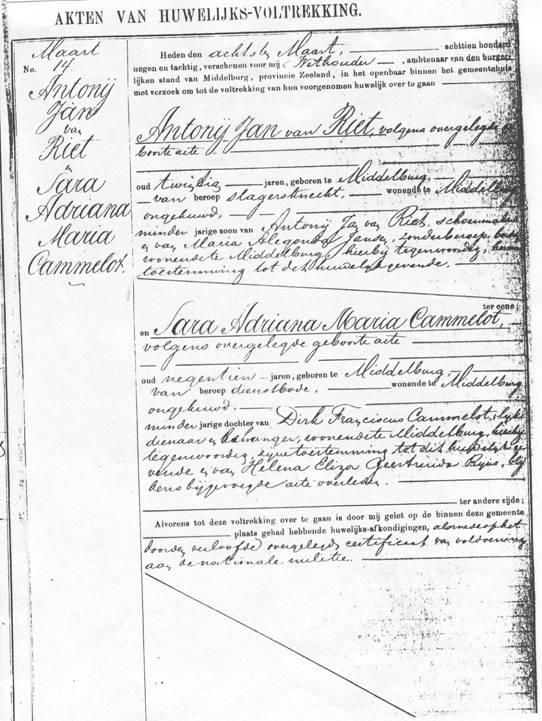 AKTEN VAN HUWELIJKS-VOLTREKKING.
Maart
No. 14.
Antonij
Jan
van
Riet
en
Sara
Adriana
Maria
Cammelot.
Heden den achtsten Maart, achttien honderd
negen en tachtig, verschenen voor mij Wethouder, ambtenaar van den burger-
lijken stand van Middelburg, provincie Zeeland, in het openbaar binnen het gemeentehuis
met verzoek om tot de voltrekking van hun voorgenomen huwelijk over te gaan
Antonij Jan van Riet, volgens overgelegde
boorteakte
oud twintig jaren, geboren te Middelburg,
van beroep slagersknecht, wonende te Middelburg
ongehuwd,
minder jarige zoon van Antonij Jan van Riet, schoenmaker
en van Maria Alegonda Jansen, zonder beroep,
wonende te Middelburg, hierbij tegenwoordig, hunne
toestemming tot dit huwelijk gevende.
ter eene;
en Sara Adriana Maria Cammelot,
volgens overgelegde geboorte akte
oud negentien jaren, geboren te Middelburg,
van beroep dienstbode, wonende te Middelburg
ongehuwd,
minder jarige dochter van Dirk Franciscus Cammelot,
dienaar en, wonende te Middelburg, hierbij
tegenwoordig, zijne toestemming tot dit huwelijk ge-
vende en van Helena Eliza Geertruida
kens bijgevoegde akte overleden.
ter andere zijde;
Alvorens tot deze voltrekking over te gaan is door mij gelet op de binnen deze gemeente
plaats gehad hebbende huwelijks-afkondigingen, alsmede op het
door den verloofde overgelegd certificaat van voldoening
aan de nationale militie.